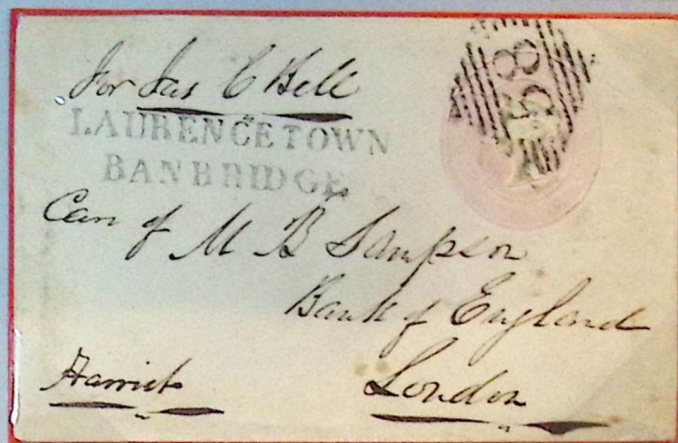 For Jas C Bell
LAURENCETOWN
BANBRIDGE
Care of M B Sampson
Bank of England
Harriet
London